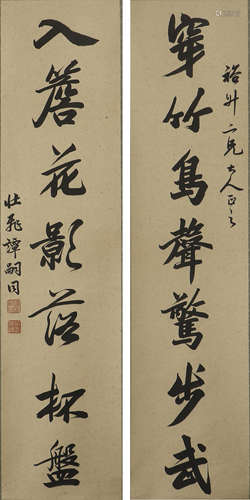 裕舟二兄大人正之
穿竹鳥聲驚步武
入簷花影落杯盤
壯飛譚嗣同